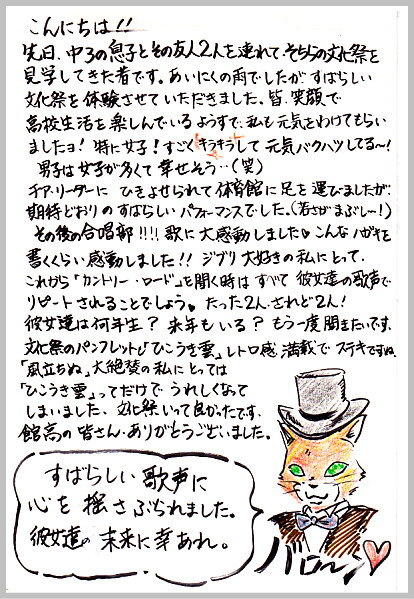 こんにちは!!
先日、中3の息子とその友人2人を連れて、そちらの文化祭を
見学してきた者です。あいにくの雨でしたがすばらしい
文化祭を体験させていただきました。皆、笑顔で
高校生活を楽しんでいるようすで、私も元気をわけてもらい
ましたョ!特に女子!すごくキラキラして元気バクハツしてる〜!
男子は女子が多くて幸せそう‥(笑)
チア・リーダーにひきよせられて体育館に足を運びましたが、
期待どおりのすばらしいパフォーマンスでした。(若さがまぶし〜!)
その後の合唱部!!!!歌に大感動しました♥こんなハガキを
書くくらい感動しました!!ジブリ大好きの私にとって、
これから「カントリー・ロード」を聞く時はすべて彼女達の歌声で
リピートされることでしょう♥たった2人、されど2人!
彼女達は何年生?来年もいる?もう一度聞きたいです。
文化祭のパンフレット「ひこうき雲」レトロ感満載でステキですね。
「風立ちぬ」大絶賛の私にとっては
「ひこうき雲」ってだけでうれしくなって
しまいました。文化祭いって良かったです。
館高の皆さん、ありがとうございました。
すばらしい歌声に
心を揺さぶられました。
彼女達の未来に幸あれ。
バロン